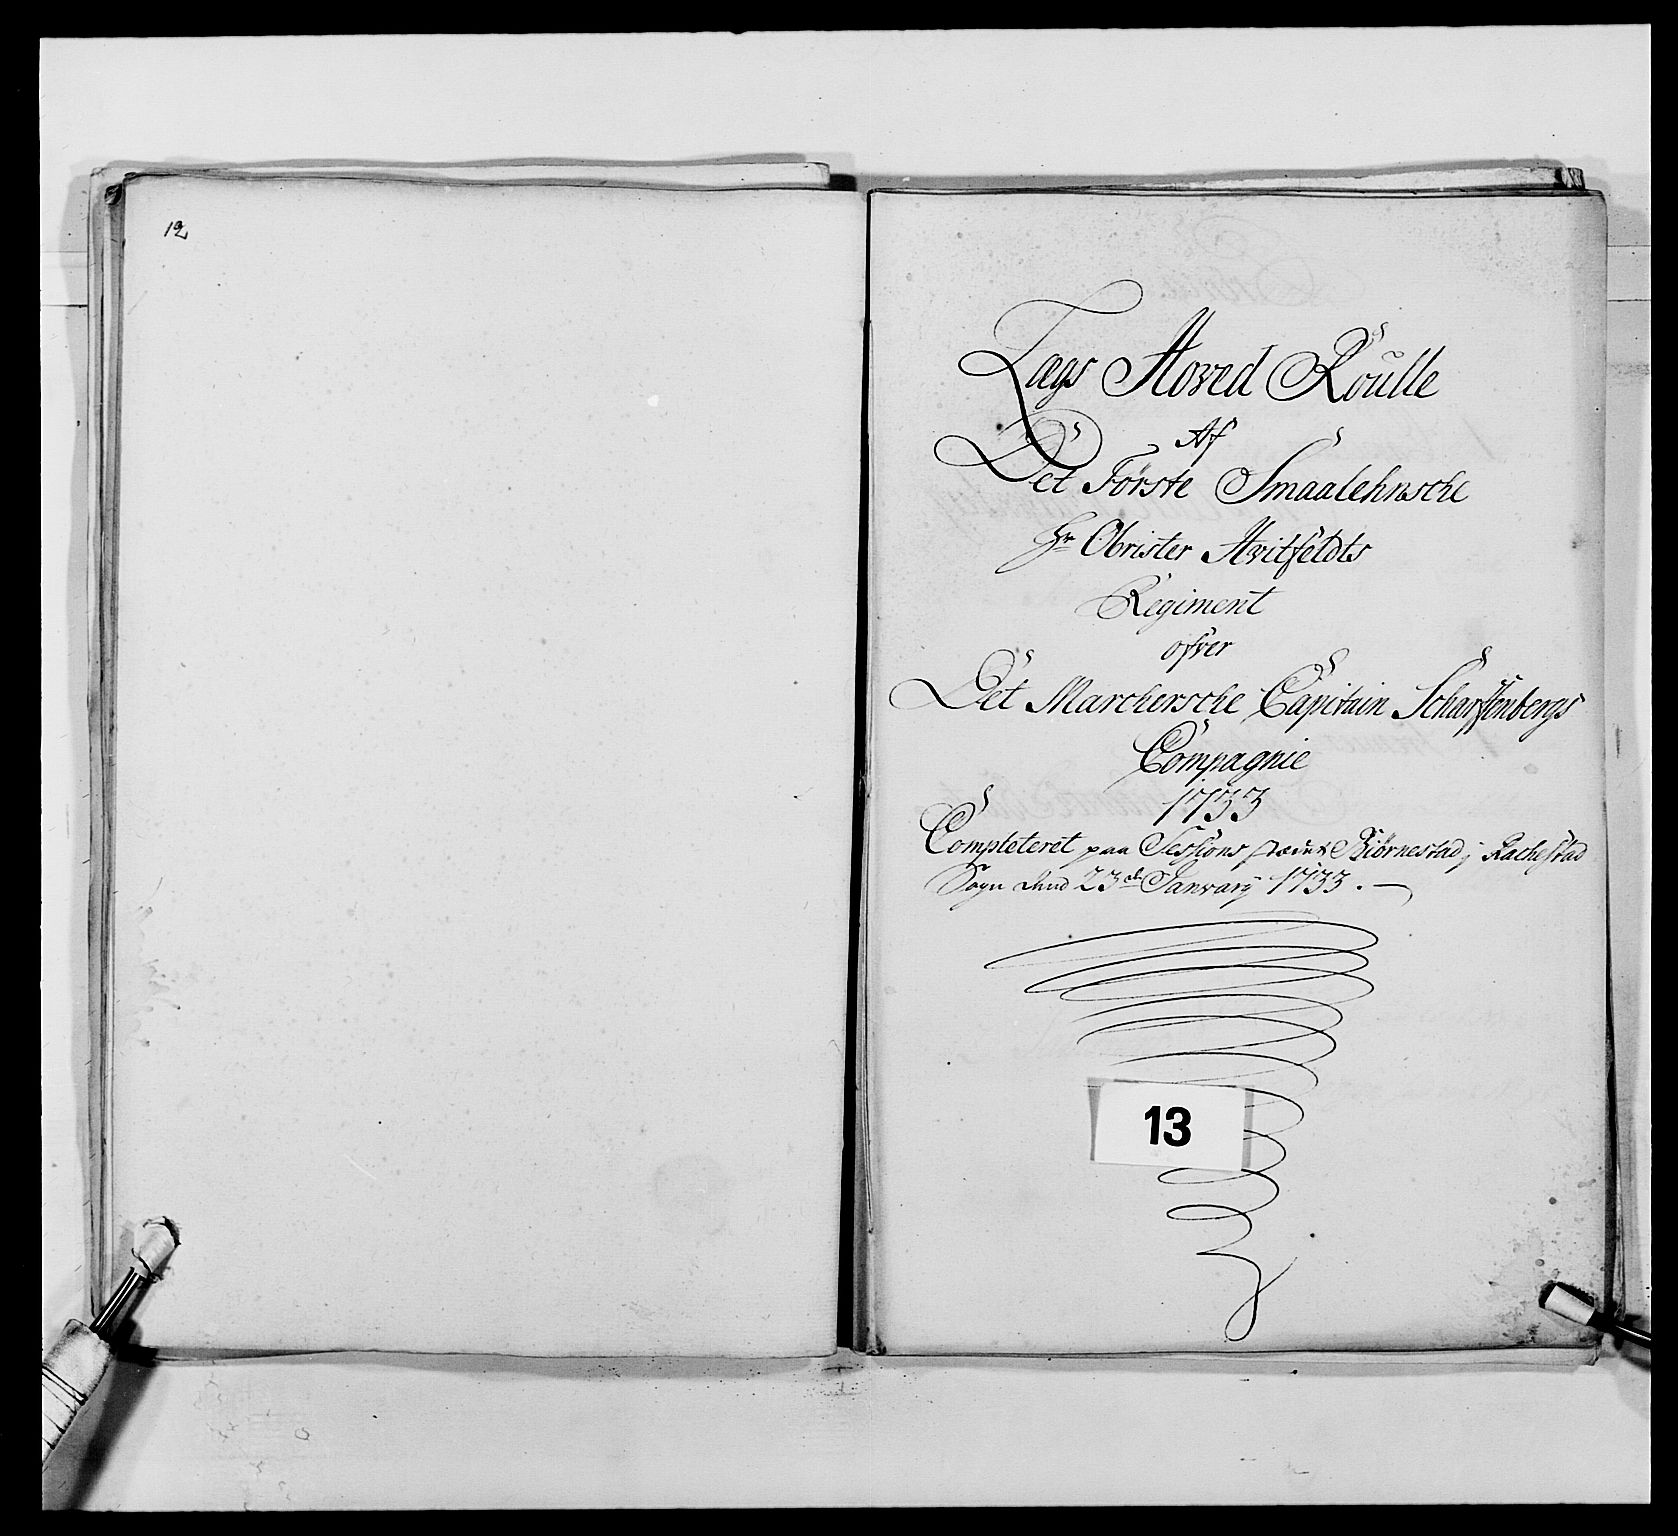 12
Lægs Hoved Roulle
Af
Det Förste Smaalehnsche
Hr Obrister Hvitfeldts
Regiment
ofver
Det Marchersche Capitain Scharffenbergs
Compagnie
1733
Completeret paa Sessions stædet Biörnestad j Rachestad
Sogn dend 23de Janvarÿ 1733.
13